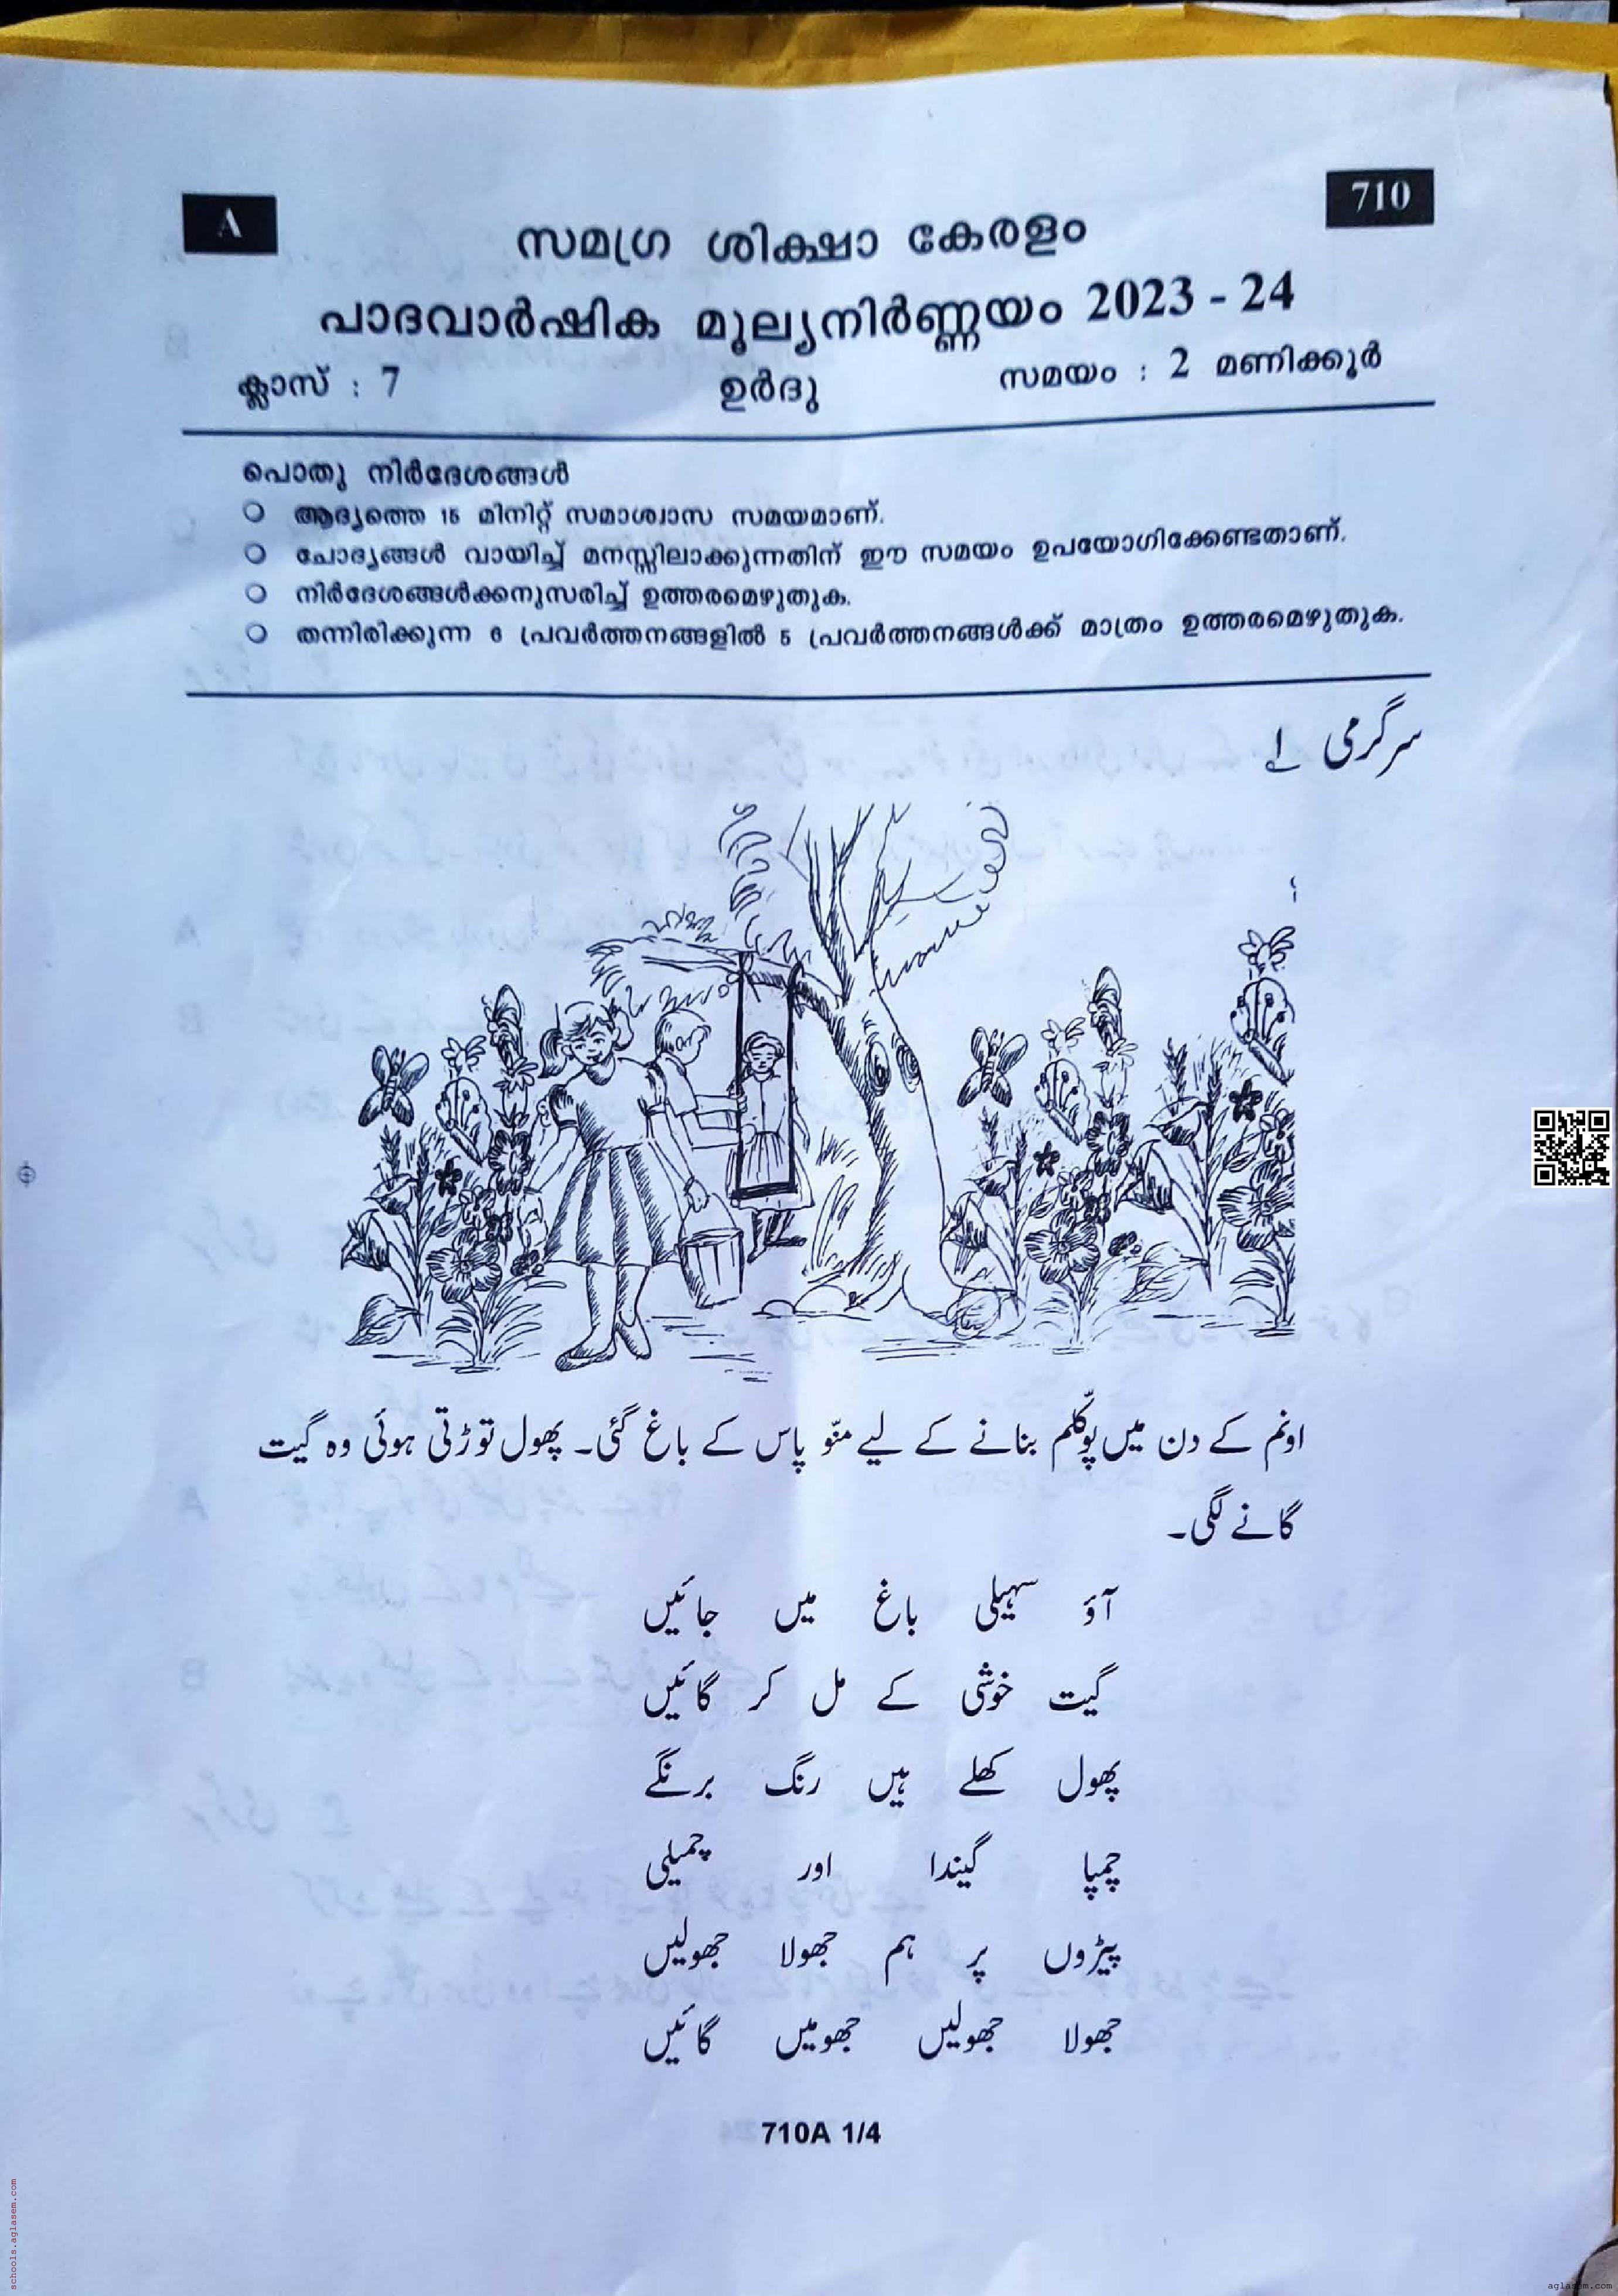 A
710
സമഗ്ര ശിക്ഷാ കേരളം
പാദവാർഷിക മൂല്യനിർണ്ണയം 2023 - 24
ക്ലാസ് : 7 ഉർദു സമയം : 2 മണിക്കൂർ
പൊതു നിർദേശങ്ങൾ
ആദ്യത്തെ 15 മിനിറ്റ് സമാശ്വാസ സമയമാണ്.
ചോദ്യങ്ങൾ വായിച്ച് മനസ്സിലാക്കുന്നതിന് ഈ സമയം ഉപയോഗിക്കേണ്ടതാണ്.
നിർദേശങ്ങൾക്കനുസരിച്ച് ഉത്തരമെഴുതുക.
തന്നിരിക്കുന്ന 6 പ്രവർത്തനങ്ങളിൽ 5 പ്രവർത്തനങ്ങൾക്ക് മാത്രം ഉത്തരമെഴുതുക.
سرگرمی ۱
اونم کے دن میں پوکّلم بنانے کے لیے منّو پاس کے باغ گئی۔ پھول توڑتی ہوئی وہ گیت
گانے لگی۔
آؤ سہیلی باغ میں جائیں
گیت خوشی کے مل کر گائیں
پھول کھلے ہیں رنگ برنگے
چمپا گیندا اور چمیلی
پیڑوں پر ہم جھولا جھولیں
جھولا جھولیں جھومیں گائیں
710A 1/4
schools.aglasem.com
aglasem.com